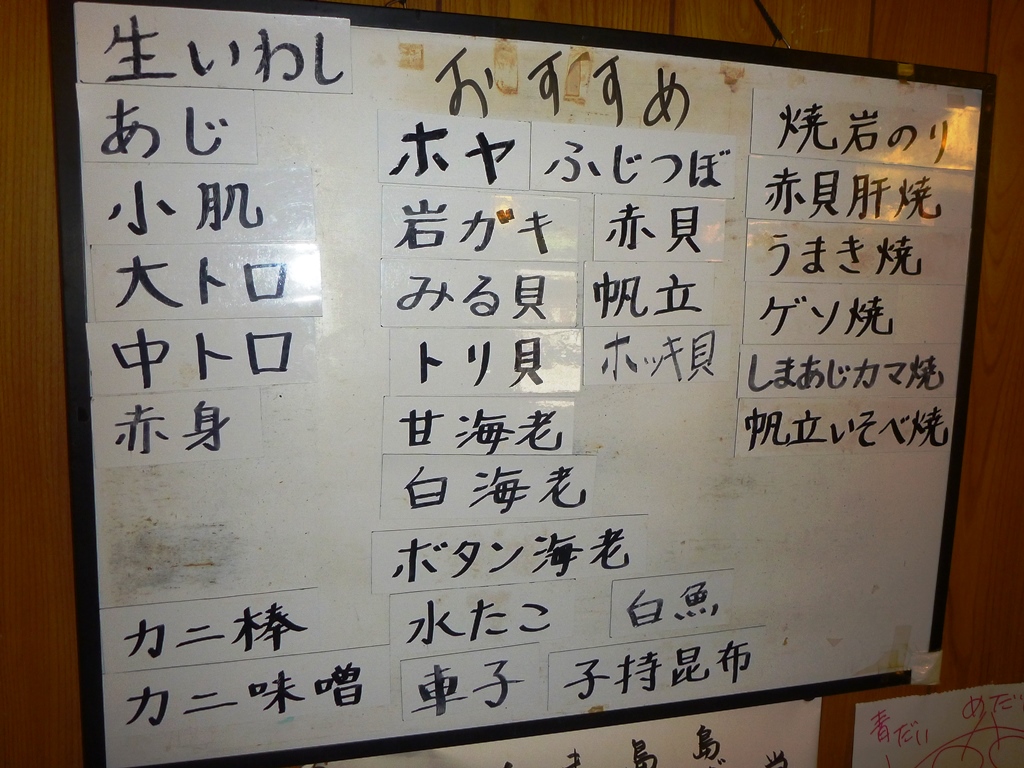 おすすめ
生いわし
あじ
小肌
大トロ
中トロ
赤身
カニ棒
カニ味噌
ホヤ
ふじつぼ
岩ガキ
赤貝
みる貝
帆立
トリ貝
ホッキ貝
甘海老
白海老
ボタン海老
水たこ
白魚
車子
子持昆布
焼岩のり
赤貝肝焼
うまき焼
ゲソ焼
しまあじカマ焼
帆立いそべ焼
島
島
青だい
めだい